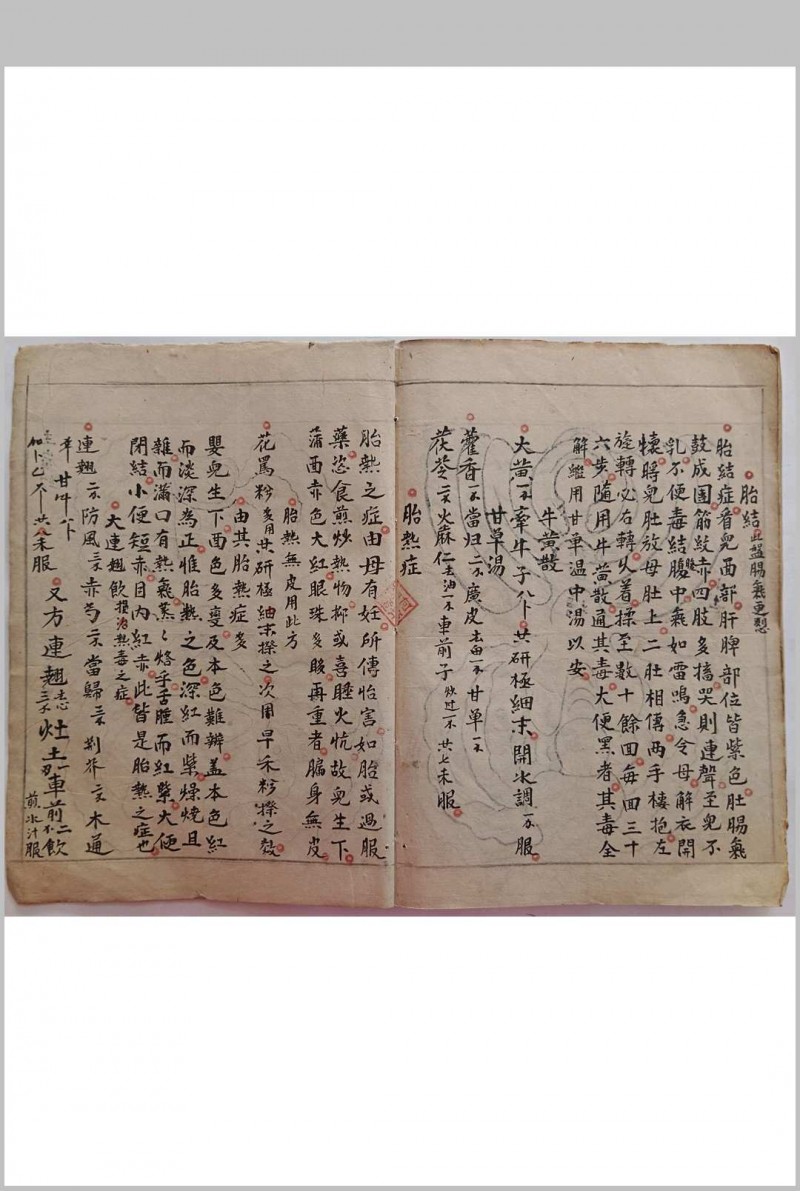 胎結 盤腸氣更愆
胎結症看兒面部肝脾部位皆紫色肚腸氣
鼓成園筋紋赤四肢多搐哭則連聲至兒不
乳不便毒結腹中氣如雷鳴急令母解衣開
懐將兒肚放母肚上二肚相傳两手摟抱左
旋轉必右轉火着揉至数十餘回每回三十
六步隨用牛黄散通其毒大便黑者其毒全
解繼用甘草温中湯以安
牛黄散
大黄 牽牛子 共研極細末開水調 服
甘草湯
藿香 當归 廣皮 甘草
茯苓 火麻仁去油 車前子炒过 共七末服
胎熱症
胎熱之症由母有妊所傳怡害如胎或過服
藥恣食煎炒熱物抑或喜睡火炕故兒生下
滿面赤色大紅眼珠多腹再重者騙身無皮
胎熱無皮用此方
花 粉多用共研極細末搽之次用早禾粉搽之效
由其胎熱症多
嬰兒生下面色多變及本色難辨盖本色紅
而淡深為正惟胎熱之色深紅而紫燥燒且
雜而滿口有熱氣蒸〻烙手舌腫而紅紫大便
閉結小便短赤目内紅赤此皆是胎熱之症也
大連翘飲 治熱毒之症
連翘 防風 赤芍 當歸 荆芥 木通
共 末服 又方連翘去心 灶土 車前 飲
煎水汁服